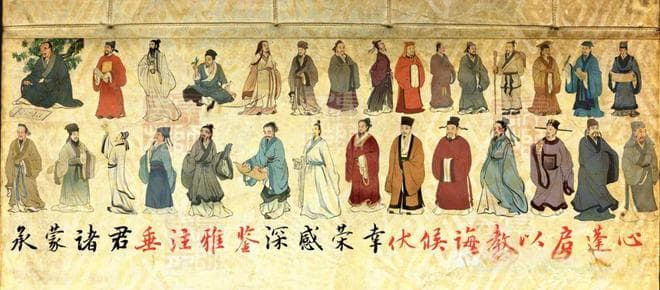 承蒙诸君垂注雅鉴深感荣幸伏候诲教以启蓬心